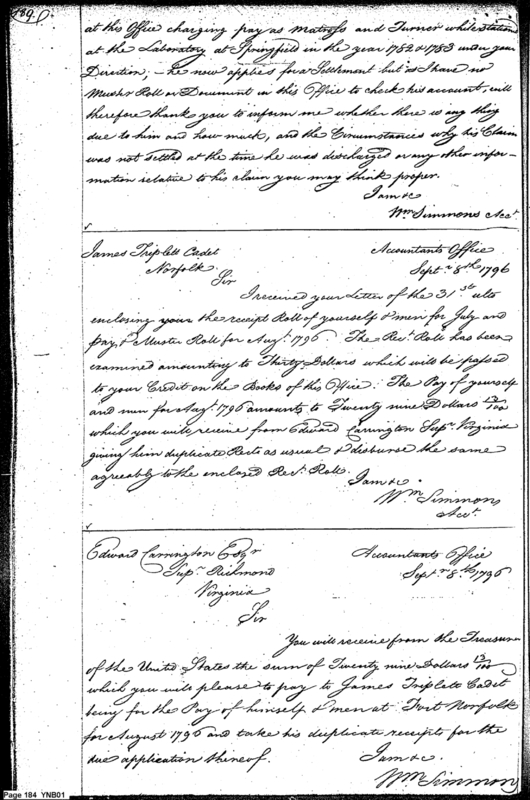 184
at this Office charging pay as Matross and Turner while station
at the Laboratory at Springfield in the year 1782 & 1783 under your
Direction, - he now applies for a Settlement but as I have no
Muster Roll or Document in this Office to check his account, will
therefore thank you to inform me whether there is any thing
due to him and how much, and the Circumstances why his Claim
was not settled at the time he was discharged or any other infor-
mation relative to his claim you may think proper.
I am &c
Wm Simmons Acct.
James Triplett Cadet
Norfolk.
Accountants Office
Septr. 8th 1796
Sir
I received your Letter of the 31st. ulto
enclosing your the receipt Roll of yourself & men for July and
Pay, & Muster Roll for Augt. 1796. The Rect. Roll has been
examined amounting to Thirty Dollars which will be passed
to your Credit on the Books of this Office. The Pay of yourself
and men for Augt. 1796 amounts to Twenty nine Dollars /100
which you will receive from Edward Carrington Supr. Virginia
giving him duplicate Rects as usual & disburse the same
agreeably to the enclosed Rect. Roll.
I am &c.
Wm Simmons
Acct.
Edward Carrington Esqr
Supr. Richmond
Virginia
Accountants Office
Septr 8th, 1796
Sir
You will receive from the Treasurer
of the United States the sum of Twenty nine Dollars /100
which you will please to pay to James Triplett Cadet
being for the Pay of himself & men at Fort Norfolk
for August 1796 and take his duplicate receipts for the
due application thereof.
I am &c.
Wm Simmons
Page 184 YNB01